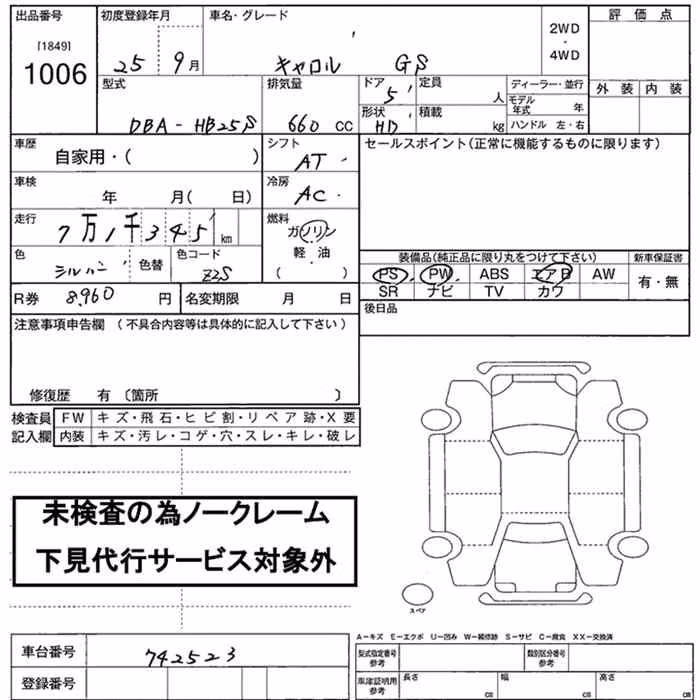 出品番号 初度登録年月 車名・グレード 評価点
[1849]
1006
25 9月 キャロル GS 2WD・4WD
外装 内装
型式 排気量 ドア 定員 ディーラー・並行
DBA-HB25S 660 cc 5 人 モデル年式 年
形状 積載
HD kg ハンドル 左・右
車歴 自家用・( ) シフト AT セールスポイント(正常に機能するものに限ります)
車検 年 月( 日) 冷房 AC
走行 7万1千345km 燃料 ガソリン 軽・油 ( )
色 シルバー 色替 色コード Z2S
装備品(純正品に限り丸をつけて下さい) 新車保証書
PS PW ABS エアB AW 有・無
SR ナビ TV カワ
R券 8,960 円 名変期限 月 日
後日品
注意事項申告欄 (不具合内容等は具体的に記入して下さい)
修復歴 有〔箇所 〕
検査員 FW キズ・飛石・ヒビ割・リペア跡・X要
記入欄 内装 キズ・汚レ・コゲ・穴・スレ・キレ・破レ
未検査の為ノークレーム
下見代行サービス対象外
スペア
A-キズ E-エクボ U-凹み W-補修跡 S-サビ C-腐食 XX-交換済
車台番号 742523
登録番号
型式指定番号 参考 類別区分番号 参考
車庫証明用 参考 長さ cm 幅 cm 高さ cm